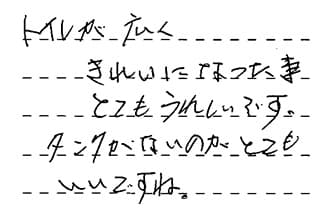 トイレが広く
きれいになった事
とてもうれしいです。
タンクがないのがとても
いいですね。